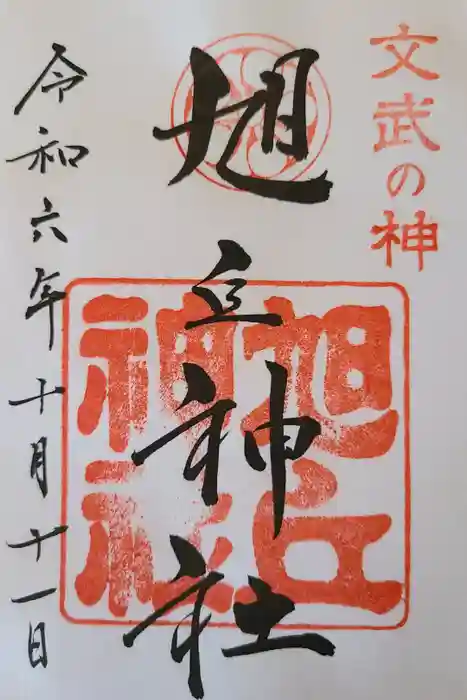 文武の神
旭丘神社
令和六年十月十一日
旭丘
神社